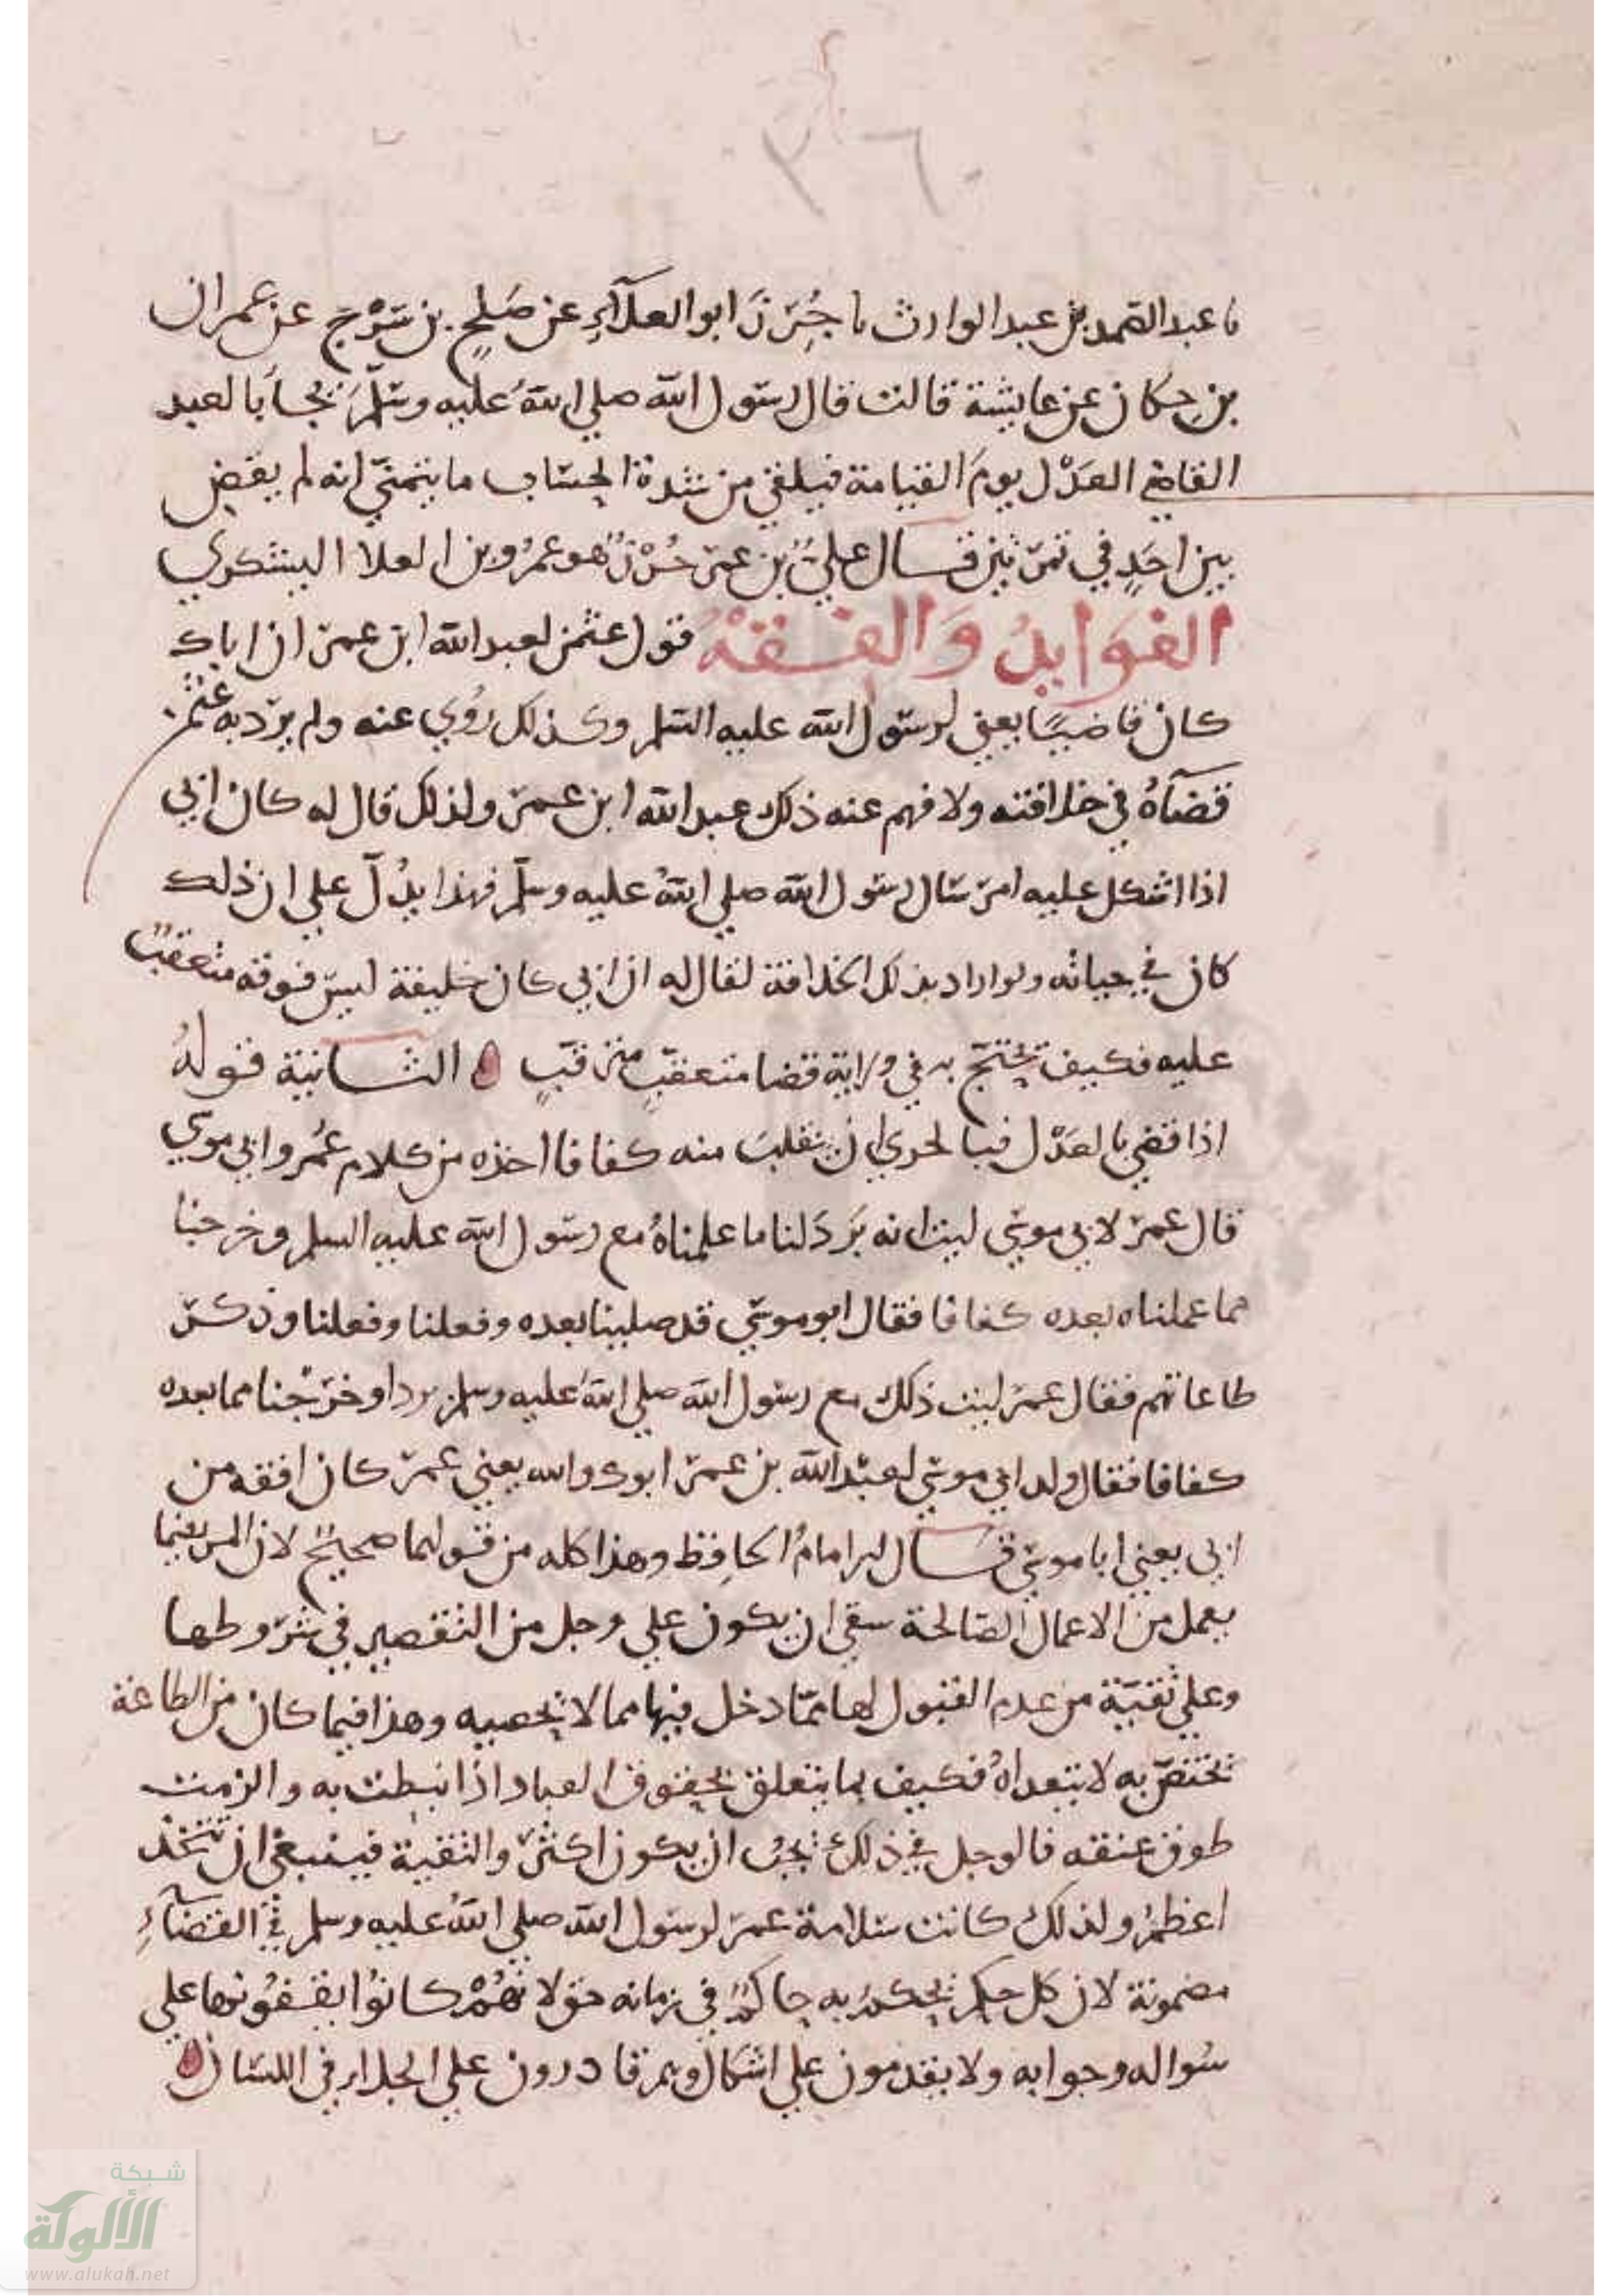 ٣٦
نا عبد الصمد بن عبد الوارث نا حُزْنَ ابو العلآءِ عن صَلح بن سَرْج عن عمران
بن حِطان عن عايشة قالت قال رسول الله صلي اللهُ عليه وسلّمَ يُجاَ بالعبد
القاضي العَدْل يومَ القيامة فيلقي من شدة الحساب ما يتمنّي انه لم يقض
بين احَدٍ في تمرتين قال عليُّ بن عمر حُزْنٌ هو عمرُو بن العلا اليشكري
الفوايدُ وَالفقهُ قول عثمن لعبد الله ابن عمر ان اباك
كان قاضيًا يعني لرسول الله عليه السلم وكذلك رُوِيَ عنه ولم يرد به عثمن
قضآهُ في خلافته ولا فهم عنه ذلك عبد الله ابن عمر ولذلك قال له كان ابي
اذا اشكل عليه امر سال رسول الله صلي اللهُ عليه وسلّم فهذا يدُلّ علي ان ذلك
كان في حياته ولو اراد بذلك الخلافة لقال له ان ابي كان خليفة ليس فوقه متعقبٌ
عليه فكيف تحتجّ به في ولاية قضا متعقبٍ مترقبٍ الثانية قولهُ
اذا قضي بالعَدْل فبالحري ان ينقلبَ منه كفافا اخذه من كلام عُمر وابي موسي
قال عمر لابي موسي ليت انه بَرَدَ لنا ما عملناهُ مع رسول الله عليه السلم وخرجنا
مما عملناه بعده كفافا فقال ابو موسي قد صلينا بعده وفعلنا وفعلنا وذكر
طاعاتهم فقال عمر ليت ذلك مع رسول الله صلي اللهُ عليه وسلم برد وخرَجْنا مما بعده
كفافا فقال ولد ابي موسي لعبْد الله بن عمر ابوك والله يعني عمر كان افقه من
ابي يعني ابا موسي قال الامامُ الحافِظ وهذا كله من قولهما صحيحٌ لان المر فيما
يعمل من الاعمال الصالحة ينبغي ان يكون علي وجل من التقصير في شروطها
وعلي تقيّة من عدم القبول لها ممّا دخل فيها مما لا يحصيه وهذا فيما كان من الطاعة
تختصّ به لا يتعداهُ فكيف بما يتعلق بحقوق العباد اذا نيطت به والزمت
طوق عنقه فالوجل في ذلك يجبُ ان يكون اكثر والتقية فينبغي ان تتخذ
اعظمُ ولذلك كانت سلامة عمر لرسول الله صلي اللهُ عليه وسلم في القضآءِ
مضمونة لان كل حكمٍ يحكمُ به حاكمٌ في زمانه حق لانهُمْ كانوُا يقفُونها علي
سُواله وجوابه ولا يقدمون علي اشكال وهم قادرون علي الجلاء في اللسان
شبكة
الألوكة
www.alukah.net